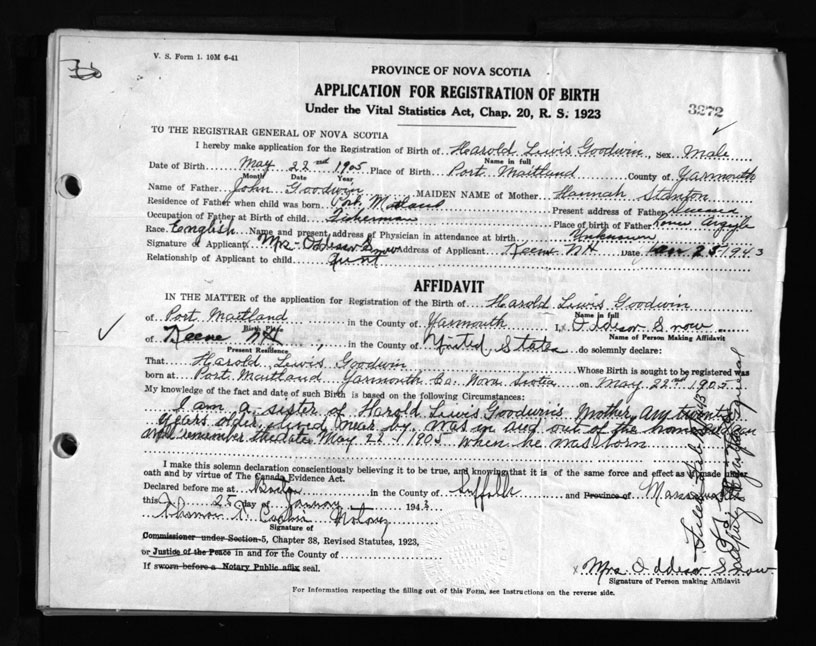 V. S. Form 1. 10M 6-41
PROVINCE OF NOVA SCOTIA
APPLICATION FOR REGISTRATION OF BIRTH
Under the Vital Statistics Act, Chap. 20, R. S. 1923
3272
TO THE REGISTRAR GENERAL OF NOVA SCOTIA
I hereby make application for the Registration of Birth of Harold Lewis Goodwin, Sex Male
Name in full
Date of Birth May 22nd 1905 Place of Birth Port Maitland County of Yarmouth
Month Date Year
Name of Father John Goodwin MAIDEN NAME of Mother Hannah Stanton
Residence of Father when child was born Port Maitland Present address of Father
Occupation of Father at Birth of child Fisherman Place of birth of Father Lower Argyle
Race English Name and present address of Physician in attendance at birth Unknown
Signature of Applicant Mrs. Oddesor Snow Address of Applicant Keene NH Date Jan 25 1943
Relationship of Applicant to child Aunt
AFFIDAVIT
IN THE MATTER of the application for Registration of the Birth of Harold Lewis Goodwin
Name in full
of Port Maitland in the County of Yarmouth I, Oddesor Snow
Birth Place Name of Person Making Affidavit
of Keene NH, in the County of United States do solemnly declare:
Present Residence
That Harold Lewis Goodwin Whose Birth is sought to be registered was
born at Port Maitland Yarmouth Co. Nova Scotia on May 22nd 1905
My knowledge of the fact and date of such Birth is based on the following Circumstances:
I am a sister of Harold Lewis Goodwin's Mother, am twenty
years older, lived near by, was in and out of the home and can
and remember the date May 22 1905 when he was born
I make this solemn declaration conscientiously believing it to be true, and knowing that it is of the same force and effect as if made under
oath and by virtue of The Canada Evidence Act.
Declared before me at Boston in the County of Suffolk and Province of Massachusetts
this 25 day of January 1943
Notary
Signature of
Commissioner under Section 5, Chapter 38, Revised Statutes, 1923,
or Justice of the Peace in and for the County of
If sworn before a Notary Public affix seal.
x Mrs Oddesor Snow
Signature of Person making Affidavit
For Information respecting the filling out of this Form, see Instructions on the reverse side.